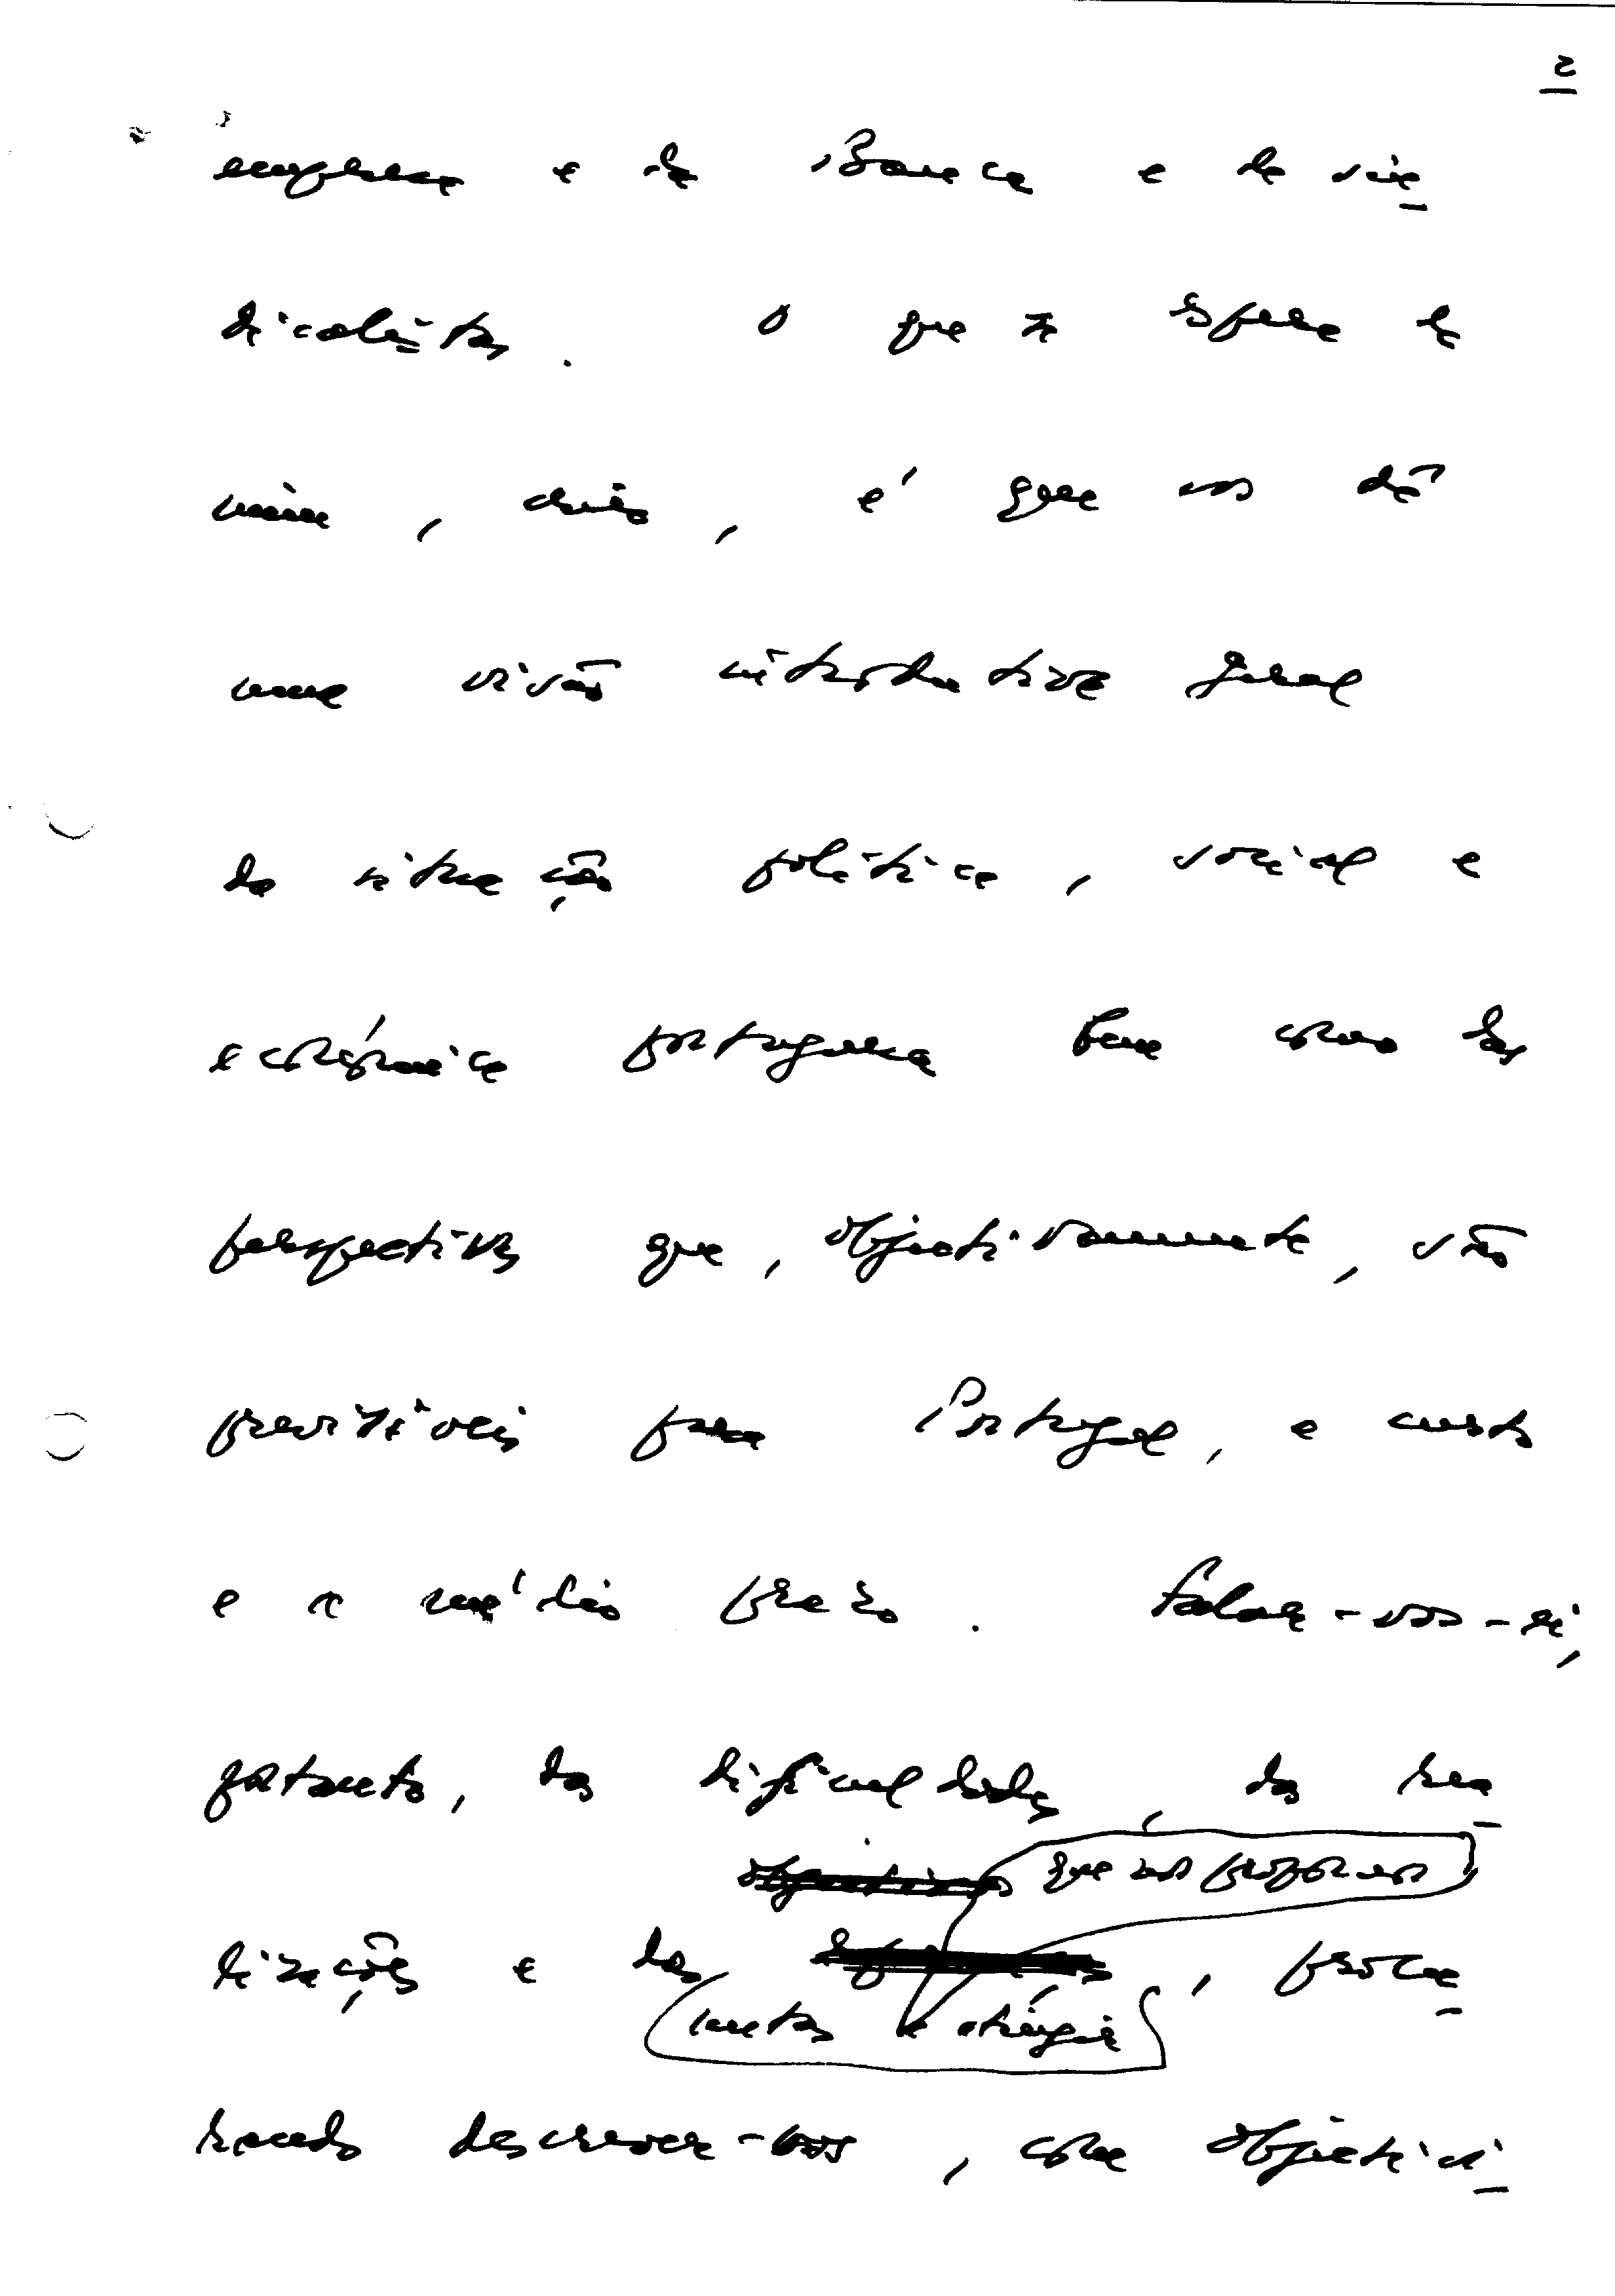 2
empresa e da Banca e do sin
dicalistas. O que se espera de
mim, creio, é que vos dê
uma visão introdutiva geral
da situação política, social e
económica portuguesa bem como das
perspectivas que, objectivamente, são
previsíveis para Portugal, a curto
e a médio prazo. Falar-vos-ei,
portanto, das dificuldades, das rea
objectivos que nos propomos
lizações e das, procu
metas atingir
rando descrever-vos, com objectivi